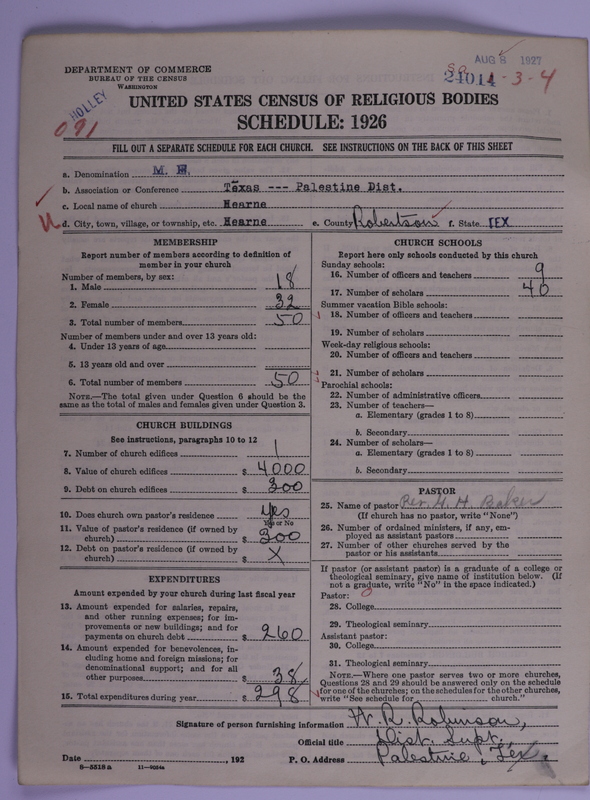 AUG 8 1927
DEPARTMENT OF COMMERCE
BUREAU OF THE CENSUS
WASHINGTON
24014 - 3 - 4
HOLLEY
091
UNITED STATES CENSUS OF RELIGIOUS BODIES
SCHEDULE: 1926
FILL OUT A SEPARATE SCHEDULE FOR EACH CHURCH. SEE INSTRUCTIONS ON THE BACK OF THIS SHEET
a. Denomination M. E.
b. Association or Conference Texas --- Palestine Dist.
c. Local name of church Hearne
d. City, town, village, or township, etc. Hearne e. County Robertson f. State TEX
MEMBERSHIP
Report number of members according to definition of
member in your church
Number of members, by sex:
1. Male 18
2. Female 32
3. Total number of members 50
Number of members under and over 13 years old:
4. Under 13 years of age
5. 13 years old and over
6. Total number of members 50
NOTE.—The total given under Question 6 should be the
same as the total of males and females given under Question 3.
CHURCH BUILDINGS
See instructions, paragraphs 10 to 12
7. Number of church edifices 1
8. Value of church edifices $ 4000
9. Debt on church edifices $ 300
10. Does church own pastor's residence yes
Yes or No
11. Value of pastor's residence (if owned by
church) $ 300
12. Debt on pastor's residence (if owned by
church) $ X
EXPENDITURES
Amount expended by your church during last fiscal year
13. Amount expended for salaries, repairs,
and other running expenses; for im-
provements or new buildings; and for
payments on church debt $ 260
14. Amount expended for benevolences, in-
cluding home and foreign missions; for
denominational support; and for all
other purposes $ 38
15. Total expenditures during year $ 298
CHURCH SCHOOLS
Report here only schools conducted by this church
Sunday schools:
16. Number of officers and teachers 9
17. Number of scholars 40
Summer vacation Bible schools:
18. Number of officers and teachers
19. Number of scholars
Week-day religious schools:
20. Number of officers and teachers
21. Number of scholars
Parochial schools:
22. Number of administrative officers
23. Number of teachers—
a. Elementary (grades 1 to 8)
b. Secondary
24. Number of scholars—
a. Elementary (grades 1 to 8)
b. Secondary
PASTOR
25. Name of pastor Rev. H. H. Baker
(If church has no pastor, write "None")
26. Number of ordained ministers, if any, em-
ployed as assistant pastors
27. Number of other churches served by the
pastor or his assistants
If pastor (or assistant pastor) is a graduate of a college or
theological seminary, give name of institution below. (If
not a graduate, write "No" in the space indicated.)
Pastor:
28. College
29. Theological seminary
Assistant pastor:
30. College
31. Theological seminary
NOTE.—Where one pastor serves two or more churches,
Questions 28 and 29 should be answered only on the schedule
for one of the churches; on the schedules for the other churches,
write "See schedule for church."
Signature of person furnishing information W. R. Robinson,
Official title Dist. Supt.,
Date , 192 P. O. Address Palestine, Tex.
8-5518 a 11-9024a